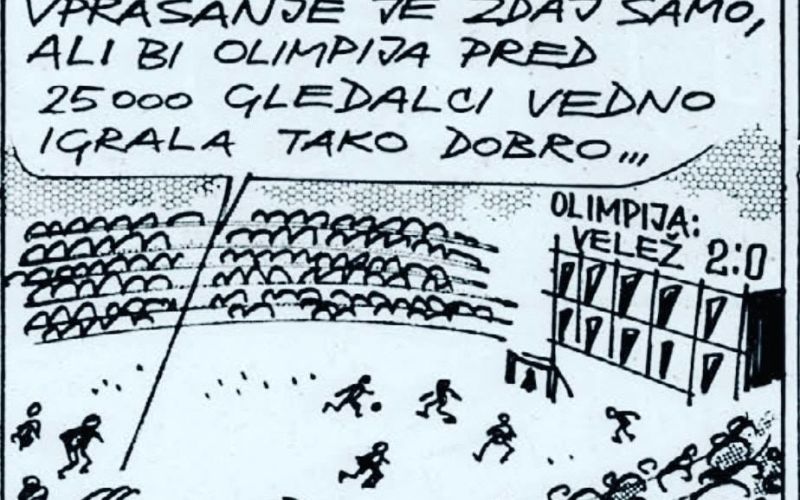 VPRAŠANJE JE ZDAJ SAMO,
ALI BI OLIMPIJA PRED
25000 GLEDALCI VEDNO
IGRALA TAKO DOBRO...
OLIMPIJA:
VELEŽ 2:0